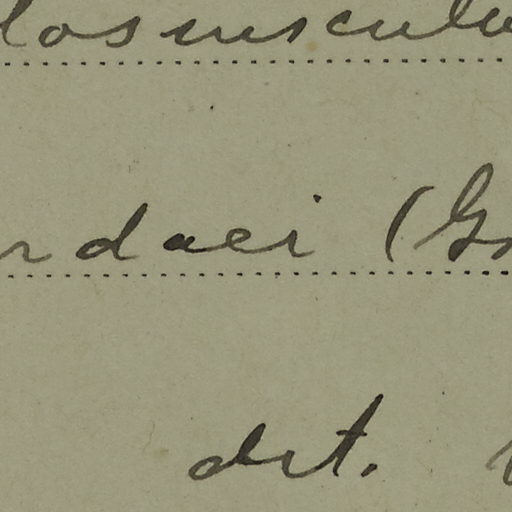 losuscula
rdaei (Go
det.